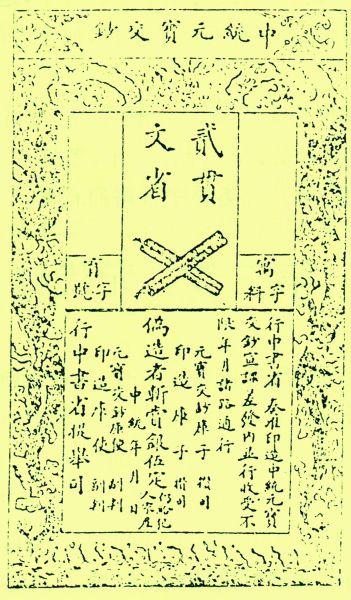 中統元寶交鈔
貳貫
文省
字料
字號
行中書省 奏准印造中統元寶
交鈔宣課差發內並行收受不
限年月諸路通行
元寶交鈔庫子 攢司
印造庫子 攢司
偽造者斬賞銀伍定仍給犯人家產
中統 年 月 日
元寶交鈔庫使 副判
印造庫使 副判
行中書省提舉司